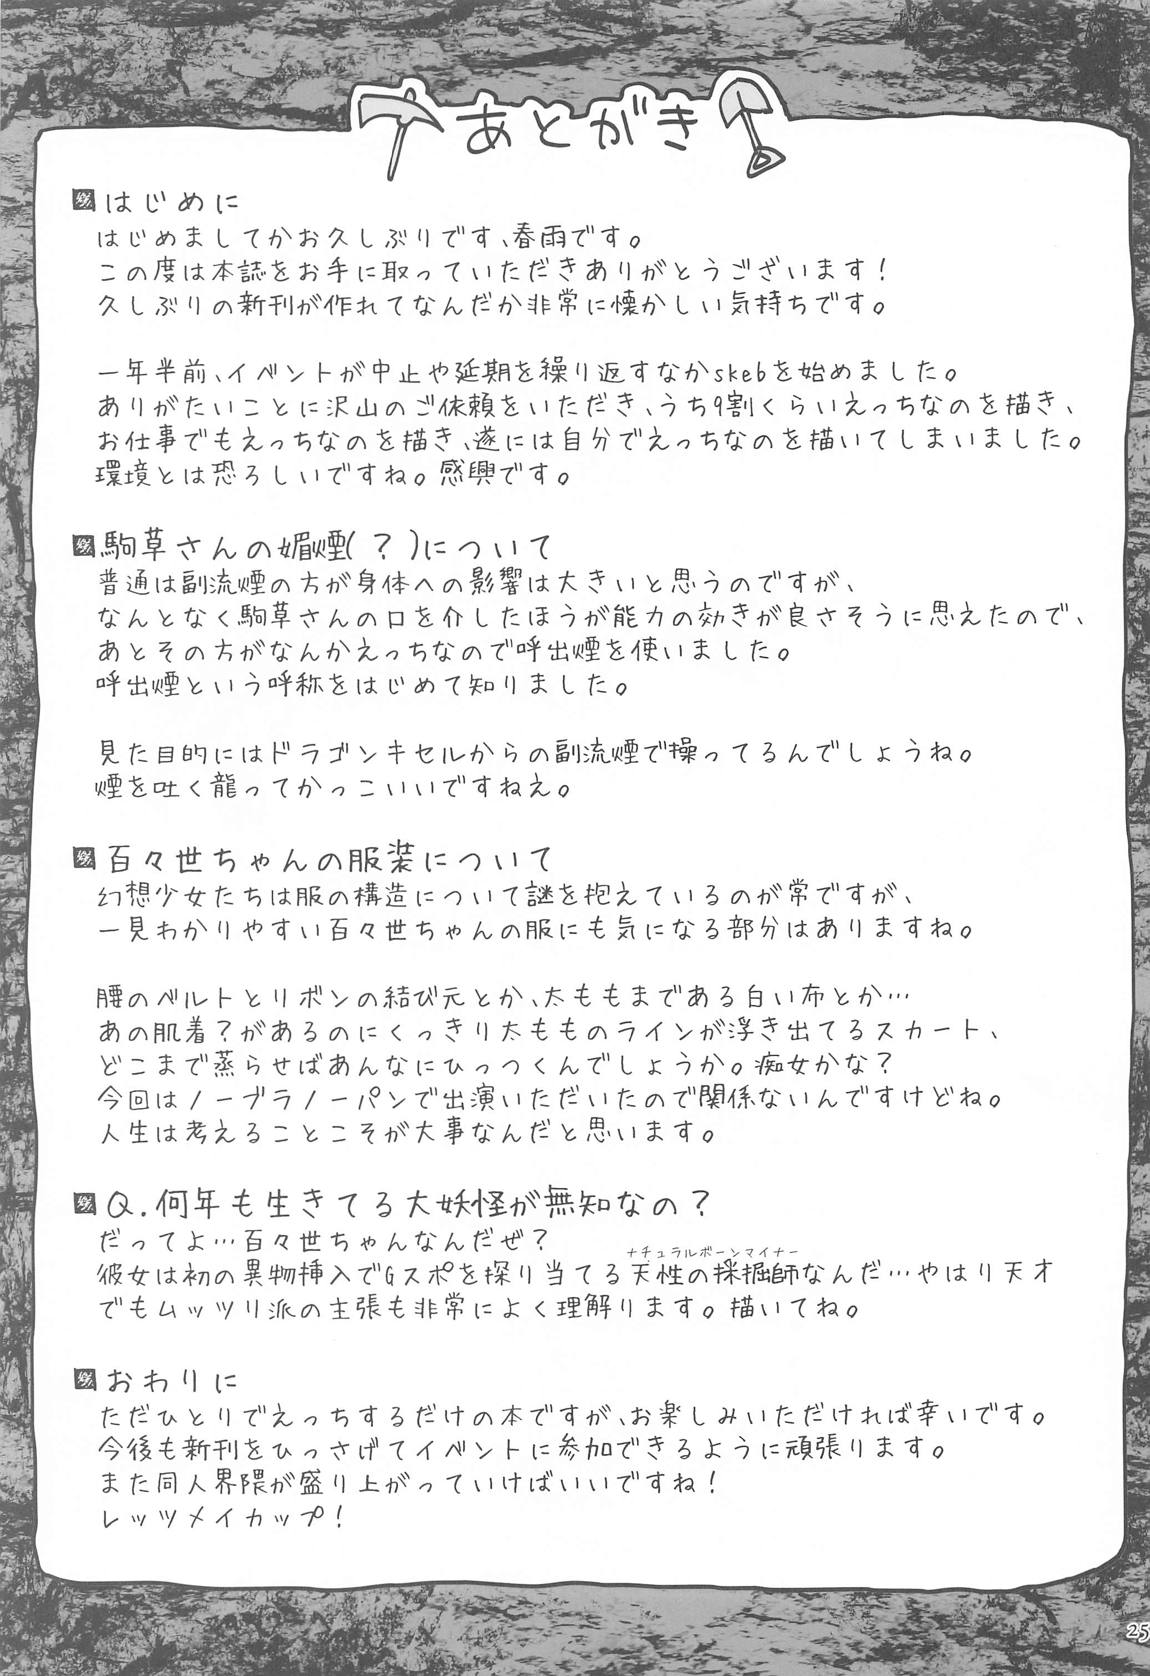 あとがき
はじめに
はじめましてかお久しぶりです、春雨です。
この度は本誌をお手に取っていただきありがとうございます!
久しぶりの新刊が作れてなんだか非常に懐かしい気持ちです。
一年半前、イベントが中止や延期を繰り返すなかskebを始めました。
ありがたいことに沢山のご依頼をいただき、うち9割くらいえっちなのを描き、
お仕事でもえっちなのを描き、遂には自分でえっちなのを描いてしまいました。
環境とは恐ろしいですね。感興です。
駒草さんの媚煙(?)について
普通は副流煙の方が身体への影響は大きいと思うのですが、
なんとなく駒草さんの口を介したほうが能力の効きが良さそうに思えたので、
あとその方がなんかえっちなので呼出煙を使いました。
呼出煙という呼称をはじめて知りました。
見た目的にはドラゴンキセルからの副流煙で操ってるんでしょうね。
煙を吐く龍ってかっこいいですねえ。
百々世ちゃんの服装について
幻想少女たちは服の構造について謎を抱えているのが常ですが、
一見わかりやすい百々世ちゃんの服にも気になる部分はありますね。
腰のベルトとリボンの結び元とか、太ももまである白い布とか…
あの肌着?があるのにくっきり太もものラインが浮き出てるスカート、
どこまで蒸らせばあんなにひっつくんでしょうか。痴女かな?
今回はノーブラノーパンで出演いただいたので関係ないんですけどね。
人生は考えることこそが大事なんだと思います。
Q.何年も生きてる大妖怪が無知なの?
だってよ…百々世ちゃんなんだぜ?
ナチュラルボーンマイナー
彼女は初の異物挿入でGスポを探り当てる天性の採掘師なんだ…やはり天才
でもムッツリ派の主張も非常によく理解ります。描いてね。
おわりに
ただひとりでえっちするだけの本ですが、お楽しみいただければ幸いです。
今後も新刊をひっさげてイベントに参加できるように頑張ります。
また同人界隈が盛り上がっていけばいいですね!
レッツメイカップ!
25